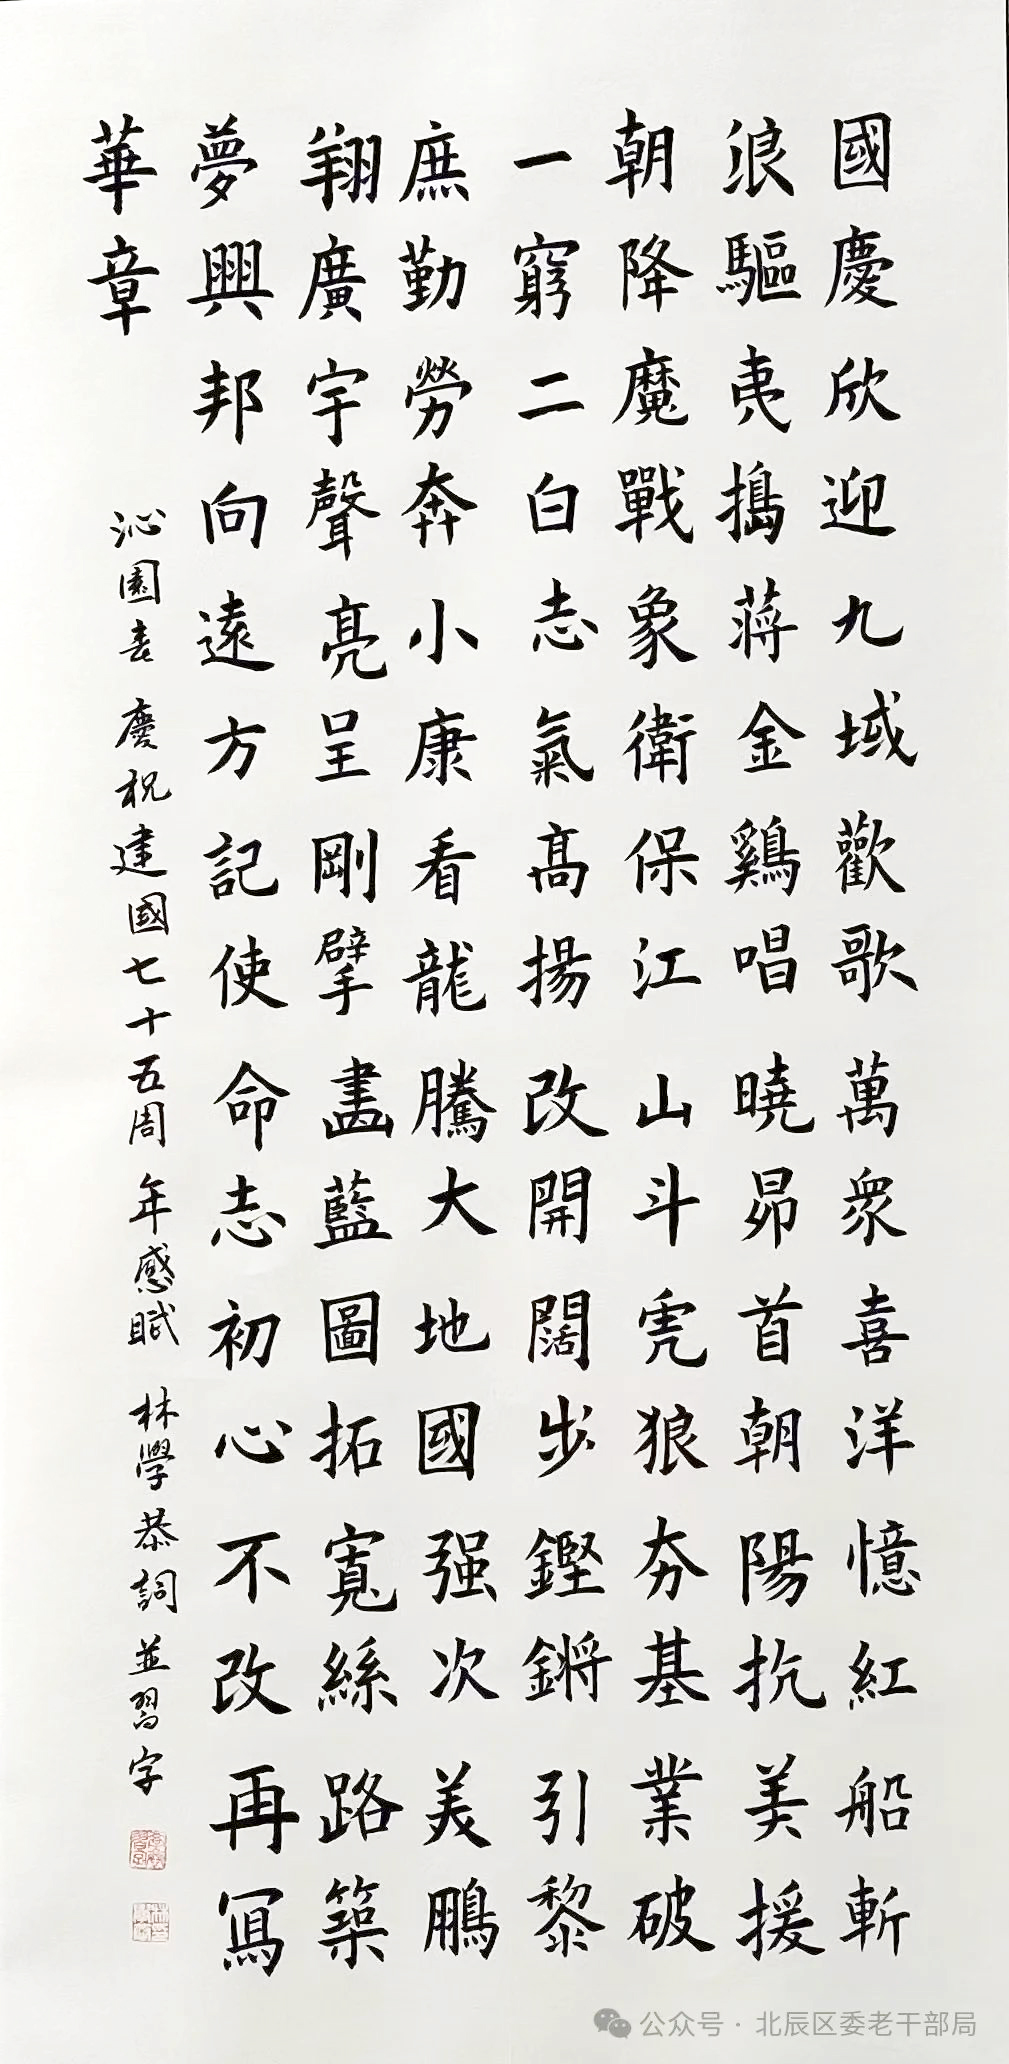 國慶欣迎九域歡歌萬衆喜洋憶紅船斬
浪驅夷搗蔣金鷄唱曉昴首朝陽抗美援
朝降魔戰象衛保江山斗虎狼夯基業破
一窮二白志氣高揚改開闊步鏗鏘引黎
庶勤勞奔小康看龍騰大地國强次美鵬
翔廣宇聲亮呈剛擘畵藍圖拓寬絲路築
夢興邦向遠方記使命志初心不改再寫
華章
沁園春慶祝建國七十五周年感賦林學恭詞並習字
公众号·北辰区委老干部局